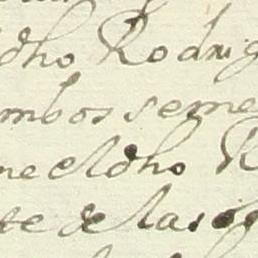 dho Rodrig
mbos seme
ne el dho R
te de las